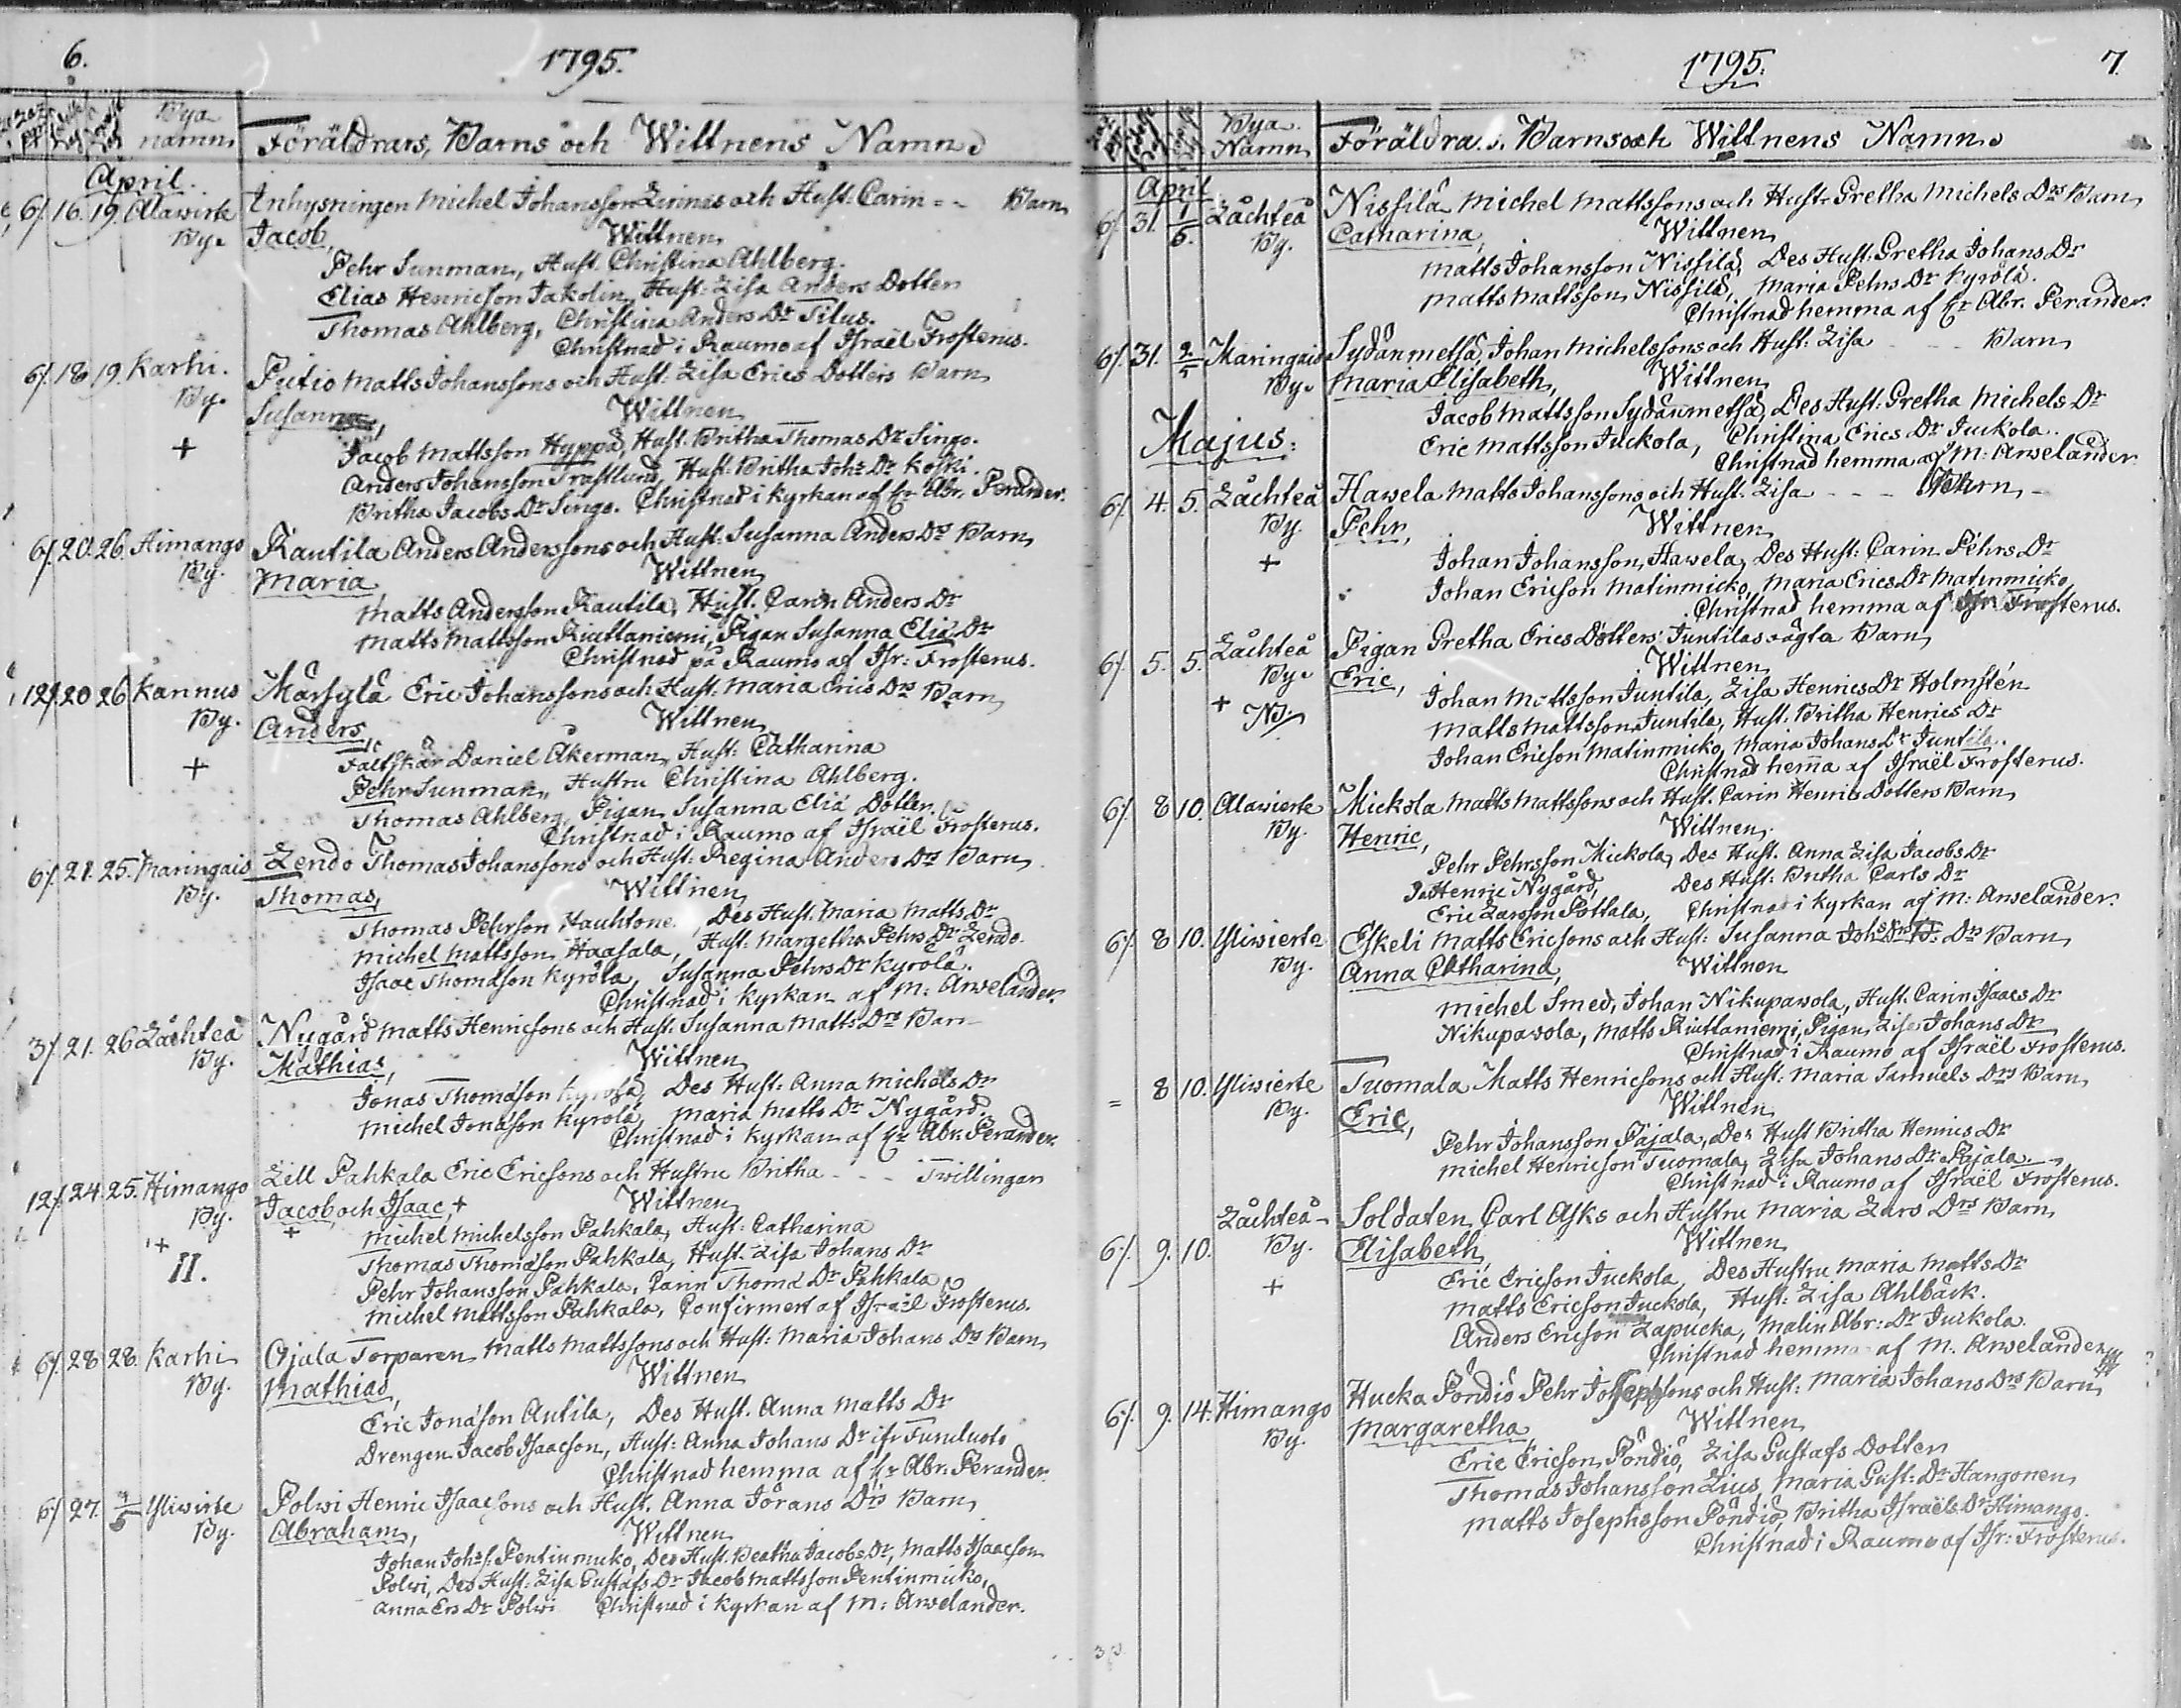 6. 1795.
Bya namn Föräldrars, Barns och Wittnens Namn
April.
6/. 16. 19. Alawirte Inhysningen Michel Johansson Linnis och Hust: Carin - - Barn
By. Jacob, Wittnen
Pehr Sunman, Hust. Christina Ahlberg.
Elias Henricson Jakolin, Hust: Lisa Anders Dotter
Thomas Ahlberg, Christina Anders Dr Titus.
Christnad i Raumo af Israël Frosterus.
6/. 18 19. Karhi. Putio Matts Johanssons och Hust: Lisa Erics Dotters Barn
By. Susanna, Wittnen
+ Jacob Mattsson Hyppä, Hust. Britha Thomas Dr Singo.
Anders Johansson Trastlund, Hust: Britha Joh: Dr Koski.
Britha Jacobs Dr Singo. Christnad i Kyrkan af Hr Abr. Perander.
6/. 20. 26. Himango Rautila Anders Anderssons och Hust: Susanna Anders Drs Barn
By. Maria Wittnen
Matts Andersson Rautila, Hust. Carin Anders Dr
Matts Mattsson Riuttaniemi, Pigan Susanna Eliæ Dr
Christnad på Raumo af Isr: Frosterus.
12/. 20 26 Kannus Märsylä Eric Johanssons och Hust: Maria Erics Drs Barn
By. Anders, Wittnen
+ Fältskär Daniel Åkerman, Hust: Catharina
Pehr Sunman, Hustru Christina Ahlberg.
Thomas Ahlberg, Pigan Susanna Eliæ Dotter.
Christnad i Raumo af Israël Frosterus.
6/. 21. 25. Maringais Lendo Thomas Johanssons och Hust: Regina Anders Drs Barn
By. Thomas, Wittnen
Thomas Pehrson Hauhtone, Des Hust. Maria Matts Dr
Michel Mattsson Haasala, Hust: Margetha Pehrs Dr Lendo.
Isaac Thomæson Kyrölä, Susanna Pehrs Dr Kyrölä.
Christnad i Kyrkan af M: Arwelander.
3/. 21. 26 Låchteå Nygård Matts Henricsons och Hust: Susanna Matts Drs Barn
By. Mathias, Wittnen
Jonas Thomæson Kyrölä, Des Hust: Anna Michels Dr
Michel Jonæson Kyrölä, Maria Matts Dr Nygård.
Christnad i Kyrkan af Hr Abr. Perander.
12/. 24. 25. Himango Lill Pahkala Eric Ericsons och Hustru Britha - - - Twillingar
By. Jacob, och Isaac, + Wittnen
+ + Michel Michelsson Pahkala, Hust: Catharina
II. Thomas Thomæson Pahkala, Hust. Lisa Johans Dr
Pehr Johansson Pahkala, Carin Thomæ Dr Pahkala
Michel Mattsson Pahkala, Confirmert af Israël Frosterus.
6/. 28 28. Karhi Ojala Torparen Matts Mattssons och Hust: Maria Johans Drs Barn
By. Mathias, Wittnen
Eric Jonæson Antila, Des Hust. Anna Matts Dr
Drengen Jacob Isaacson, Hust: Anna Johans Dr
Christnad hemma af Hr Abr. Perander.
6/. 27. 1/5 Yliwirte Polwi Henric Isaacsons och Hust. Anna Jörans Drs Barn
By. Abraham, Wittnen
Johan Johs: Pentinmicko, Des Hust. Beatha Jacobs Dr, Matts Isaacson
Polwi, Des Hust: Lisa Gustafs Dr Jacob Mattsson Pentinmicko,
Anna Ers Dr Polwi Christnad i Kyrkan af M: Arwelander.
1795. 7.
Bya Namn Föräldra. s. Barns och Wittnens Namn
April
6/. 31. 1/5. Låchteå Nissilä Michel Mattssons och Hustr Gretha Michels Drs Barn
By. Catharina, Wittnen
Matts Johansson Nissilä, Des Hust: Gretha Johans Dr
Matts Mattsson Nissilä, Maria Pehrs Dr Kyrölä.
Christnad hemma af Hr Abr. Perander.
6/. 31. 2/5 Maringais Sydänmetsä, Johan Michelssons och Hust: Lisa - - Barn
By. Maria Elisabeth, Wittnen
Jacob Mattsson Sydänmetsä, Des Hust: Gretha Michels Dr
Eric Mattsson Juckola, Christina Erics Dr Juckola.
Christnad hemma af M: Arwelander.
Majus:
6/. 4. 5. Låchteå Hawela Matts Johanssons och Hust. Lisa - - - Barn
By. Pehr, Wittnen
+ Johan Johansson Hawela, Des Hust: Carin Pehrs Dr
Johan Ericson Matinmicko, Maria Erics Dr Matinmicko
Christnad hemma af Isr Frosterus.
6/. 5. 5. Låchteå Pigan Gretha Erics Dotters: Juntilas oägta Barn
By. Eric, Wittnen
+ Johan Mattsson Juntila, Lisa Henrics Dr Holmstén
Matts Mattsson Juntila, Hust. Britha Henrics Dr
Johan Ericson Matinmicko, Maria Johans Dr Juntila.
Christnad hemma af Israël Frosterus.
6/. 8 10. Alawierte Mickola Matts Mattssons och Hust. Carin Henrics Dotters Barn
By. Henric, Wittnen
Pehr Pehrsson Mickola, Des Hust. Anna Lisa Jacobs Dr
Henric Nygård, Des Hust: Britha Carls Dr
Eric Larsson Pottala, Christnad i Kyrkan af M: Arwelander.
6/. 8 10. Yliwierte Eskeli Matts Ericsons och Hust: Susanna Drs Barn
By. Anna Catharina, Wittnen
Michel Smed, Johan Nikupawola, Hust. Carin Isaacs Dr
Nikupawola, Matts Riuttaniemi, Pigan Lisa Johans Dr
Christnad i Raumo af Israël Frosterus.
= 8 10. Yliwierte Tuomala Matts Henricsons och Hust: Maria Samuels Drs Barn
By. Eric, Wittnen
Pehr Johansson Pajala, Des Hust Britha Henrics Dr
Michel Henricson Tuomala, Lisa Johans Dr Pajala.
Christnad i Raumo af Israël Frosterus.
Låchteå Soldaten Carl Asks och Hustru Maria Lars Drs Barn
6/. 9. 10. By. Elisabeth, Wittnen
+ Eric Ericson Juckola, Des Hustru Maria Matts Dr
Matts Ericson Juckola, Hust: Lisa Ahlbäck.
Anders Ericson Lapucka, Malin Abr: Dr Juckola.
Christnad hemma af M. Arwelander
6/. 9. 14. Himango Hucka Pöndiö Pehr Josephsons och Hust: Maria Johans Drs Barn
By. Margaretha Wittnen
Eric Ericson Pöndiö, Lisa Gustafs Dotter
Thomas Johansson Lius, Maria Gust: Dr Hangonen
Matts Josephsson Pöndiö, Britha Israëls Dr Himango.
Christnad i Raumo af Isr: Frosterus.